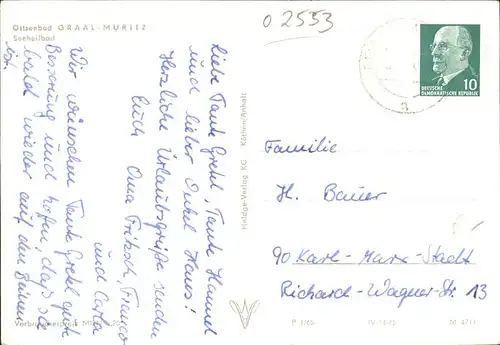 Ostseebad GRAAL-MÜRITZ
Seeheilbad
o 2553
Liebe Tante Gretel, Tante Hannel
und lieber Onkel Hans!
Herzliche Urlaubsgrüße senden
Euch Oma Fritsch,
und Carla
Wir wünschen Tante Gretel gute
Besserung und hoffen, daß sie
bald wieder auf den Beinen
ist.
DEUTSCHE
DEMOKRATISCHE REPUBLIK
10
Familie
H. Bauer
90 Karl-Marx-Stadt
Richard-Wagner-Str. 13
KG Köthen/Anhalt
Verbraucherpreis MDN
P 1/65
IV-14-45